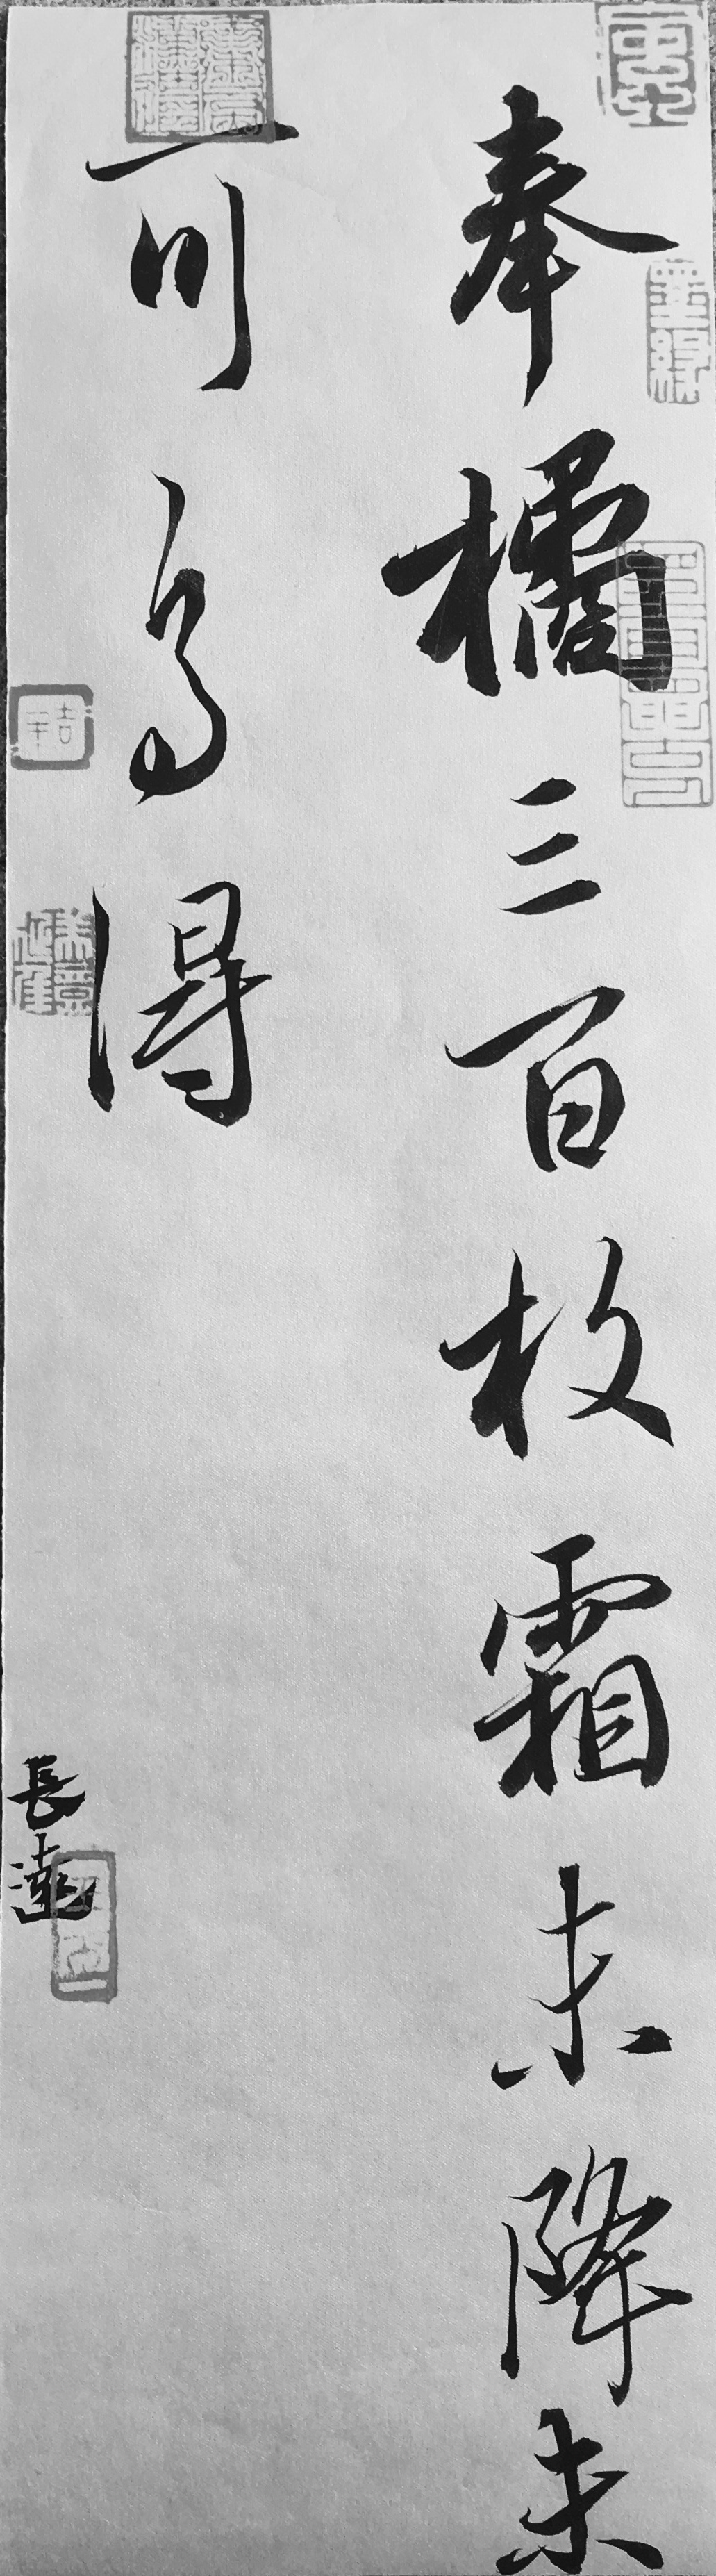 奉橘三百枚霜未降未
可多得
長遠